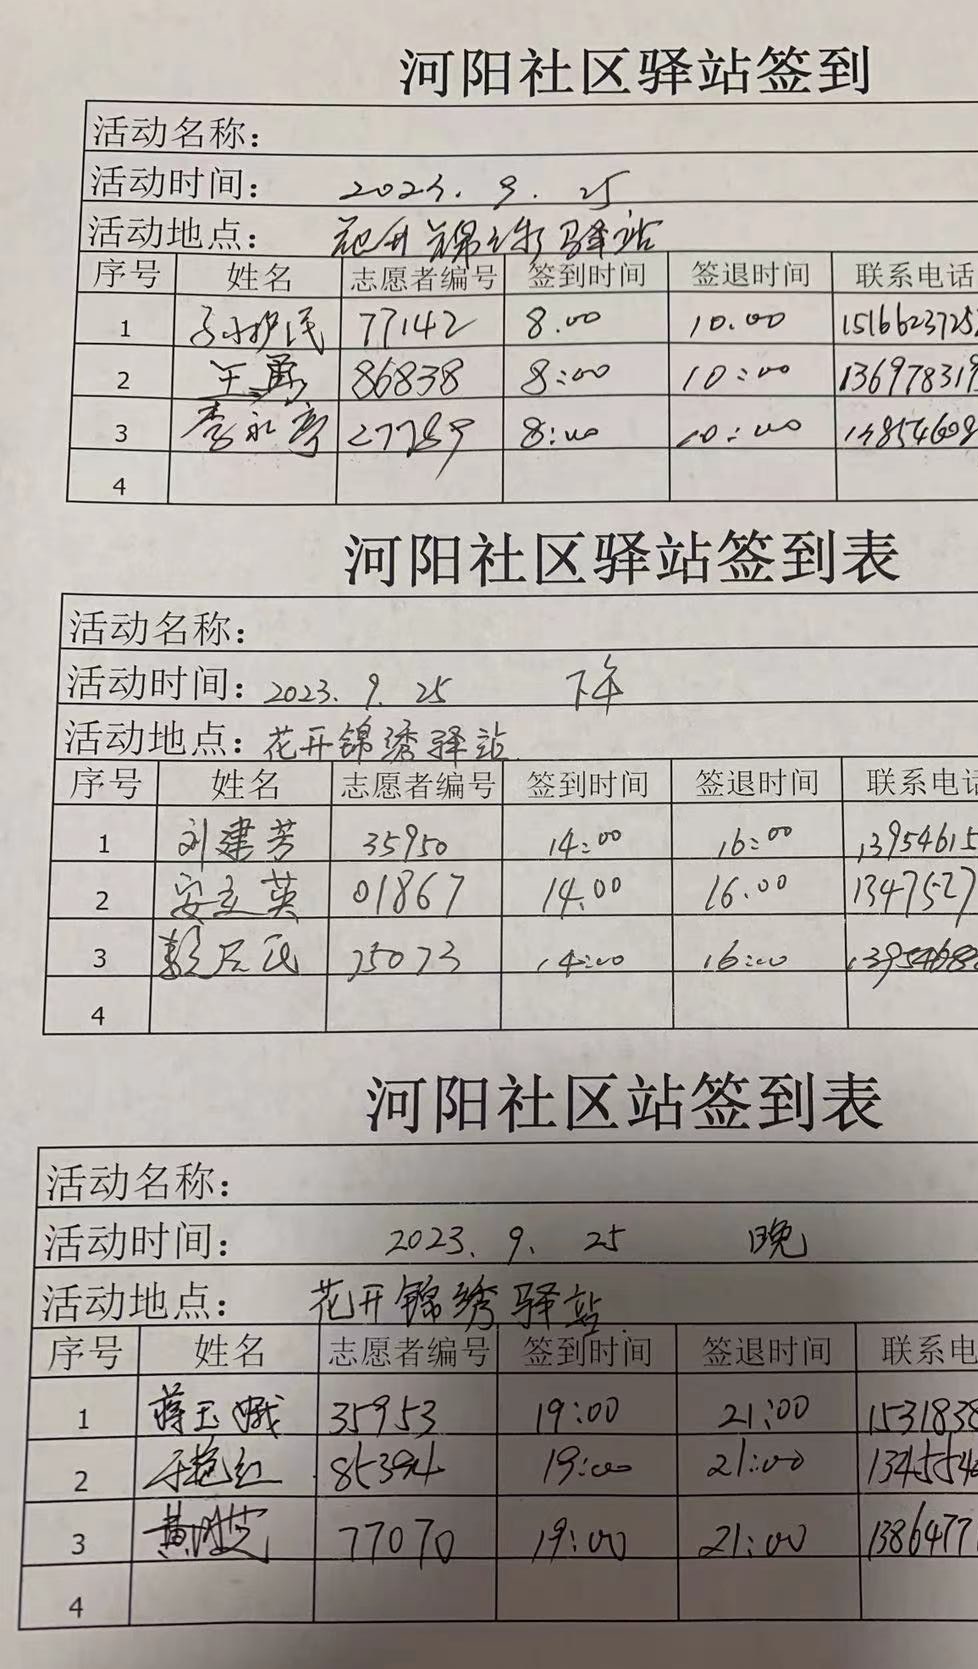 河阳社区驿站签到
活动名称：
活动时间： 2023. 9. 25
活动地点： 花开锦绣驿站
序号 姓名 志愿者编号 签到时间 签退时间 联系电话
1 77142 8.00 10.00 1516623725
2 王勇 86838 8:00 10:00 136978319
3 李永亭 27789 8:00 10:00
4
河阳社区驿站签到表
活动名称：
活动时间： 2023. 9. 25 下午
活动地点： 花开锦绣驿站
序号 姓名 志愿者编号 签到时间 签退时间 联系电话
1 刘建芳 35950 14:00 16:00 13954615
2 安立英 01867 14.00 16.00 1347527
3 75073 14:00 16:00
4
河阳社区站签到表
活动名称：
活动时间： 2023. 9. 25 晚
活动地点： 花开锦绣驿站
序号 姓名 志愿者编号 签到时间 签退时间 联系电
1 蒋玉娥 35953 19:00 21:00 1531838
2 于艳红 85394 19:00 21:00 1345546
3 77070 19:00 21:00 1386477
4